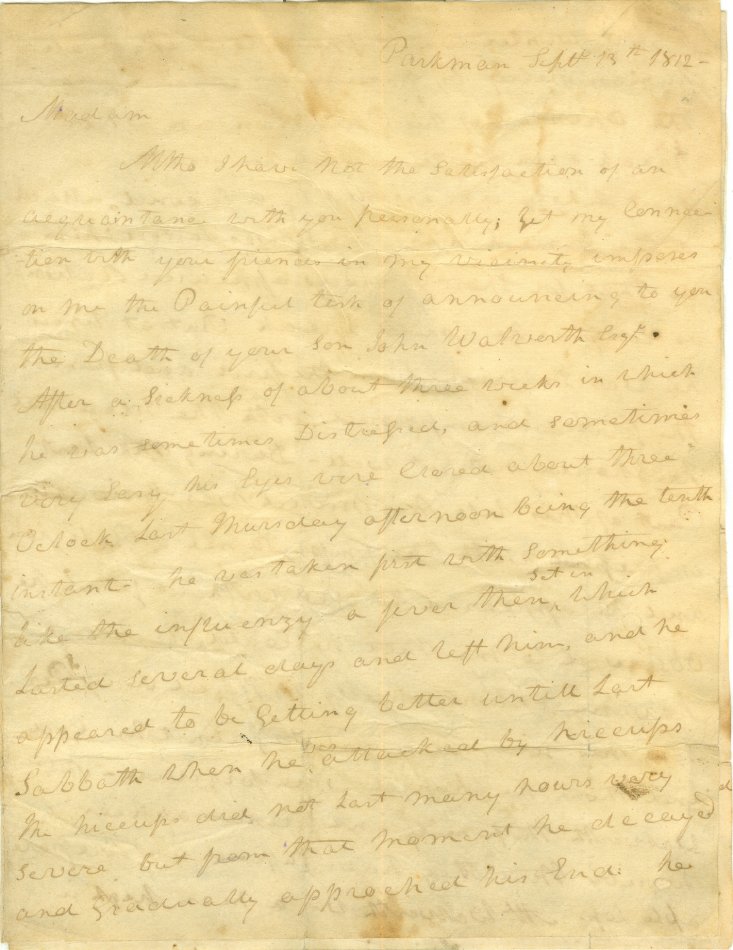 Parkman Sept. 13th 1812-
Madam
Altho I have Not the Satisfaction of an
acquaintance with you personally; yet my Connec-
-tion with your friends in my vicinity imposes
on me the Painful task of announcing to you
the Death of your Son John Walworth Esqr.
After a Sickness of about three weeks in which
he was sometimes Distressed, and sometimes
very Easy his Eyes were Closed about three
Oclock Last Thursday afternoon being the tenth
instant. he was taken first with Something
set in
like the influenzy a fever then ^ which
Lasted several days and left him, and he
appeared to be Getting better untill Last
was
Sabbath when he ^ attacked by hiccups
the hiccups did not Last many hours very
severe but from that moment he decayed
and gradually approched his End. he